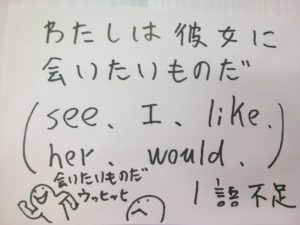 わたしは彼女に
会いたいものだ
(see、I、like、
her、would、)
会いたいものだ
ウッヒッヒ
1語不足